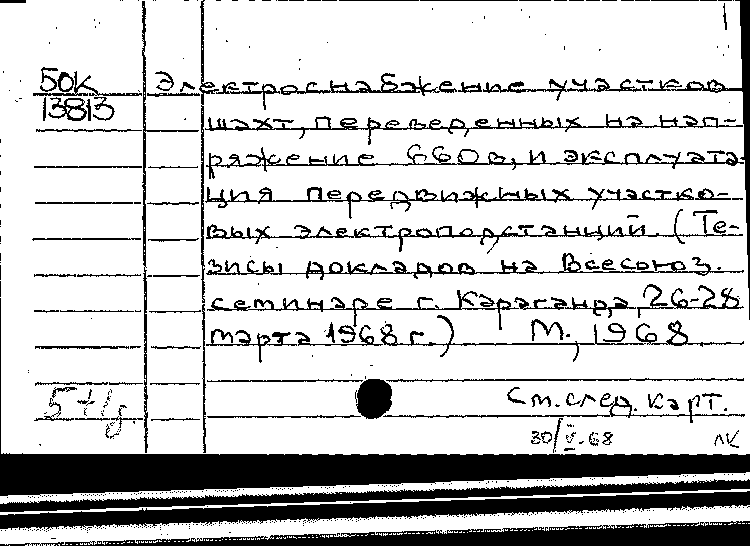 50К Электроснабжение участков
13813 шахт, переведенных на нап-
ряжение 660в, и эксплуата-
ция передвижных участко-
вых электроподстанций. (Те-
зисы докладов на Всесоюз.
семинаре г. Караганда, 26-28
марта 1968 г.) М., 1968.
См. след. карт.
30/V-68 ЛК